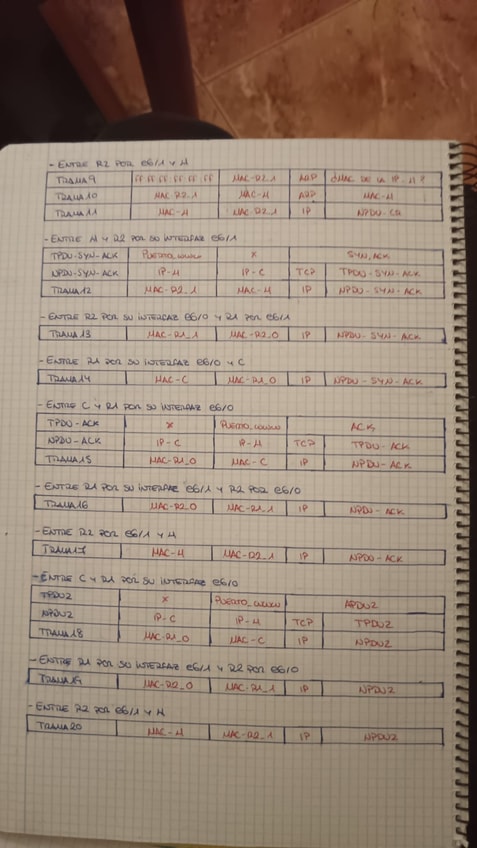 - ENTRE R2 POR e6/1 Y H
TRAMA 9 FF FF FF FF FF FF MAC-R2_1 ARP ¿MAC DE LA IP-H?
TRAMA 10 MAC-R2_1 MAC-H ARP MAC-H
TRAMA 11 MAC-H MAC-R2_1 IP NPDU-CR
- ENTRE H Y R2 POR SU INTERFAZ e6/1
TPDU-SYN-ACK PUERTO_WWW X SYN, ACK
NPDU-SYN-ACK IP-H IP-C TCP TPDU-SYN-ACK
TRAMA 12 MAC-R2_1 MAC-H IP NPDU-SYN-ACK
- ENTRE R2 POR SU INTERFAZ e6/0 Y R1 POR e6/1
TRAMA 13 MAC-R1_1 MAC-R2_0 IP NPDU-SYN-ACK
- ENTRE R1 POR SU INTERFAZ e6/0 Y C
TRAMA 14 MAC-C MAC-R1_0 IP NPDU-SYN-ACK
- ENTRE C Y R1 POR SU INTERFAZ e6/0
TPDU-ACK X PUERTO_WWW ACK
NPDU-ACK IP-C IP-H TCP TPDU-ACK
TRAMA 15 MAC-R1_0 MAC-C IP NPDU-ACK
- ENTRE R1 POR SU INTERFAZ e6/1 Y R2 POR e6/0
TRAMA 16 MAC-R2_0 MAC-R1_1 IP NPDU-ACK
- ENTRE R2 POR e6/1 Y H
TRAMA 17 MAC-H MAC-R2_1 IP NPDU-ACK
- ENTRE C Y R1 POR SU INTERFAZ e6/0
TPDU2 X PUERTO_WWW APDU2
NPDU2 IP-C IP-H TCP TPDU2
TRAMA 18 MAC-R1_0 MAC-C IP NPDU2
- ENTRE R1 POR SU INTERFAZ e6/1 Y R2 POR e6/0
TRAMA 19 MAC-R2_0 MAC-R1_1 IP NPDU2
- ENTRE R2 POR e6/1 Y H
TRAMA 20 MAC-H MAC-R2_1 IP NPDU2